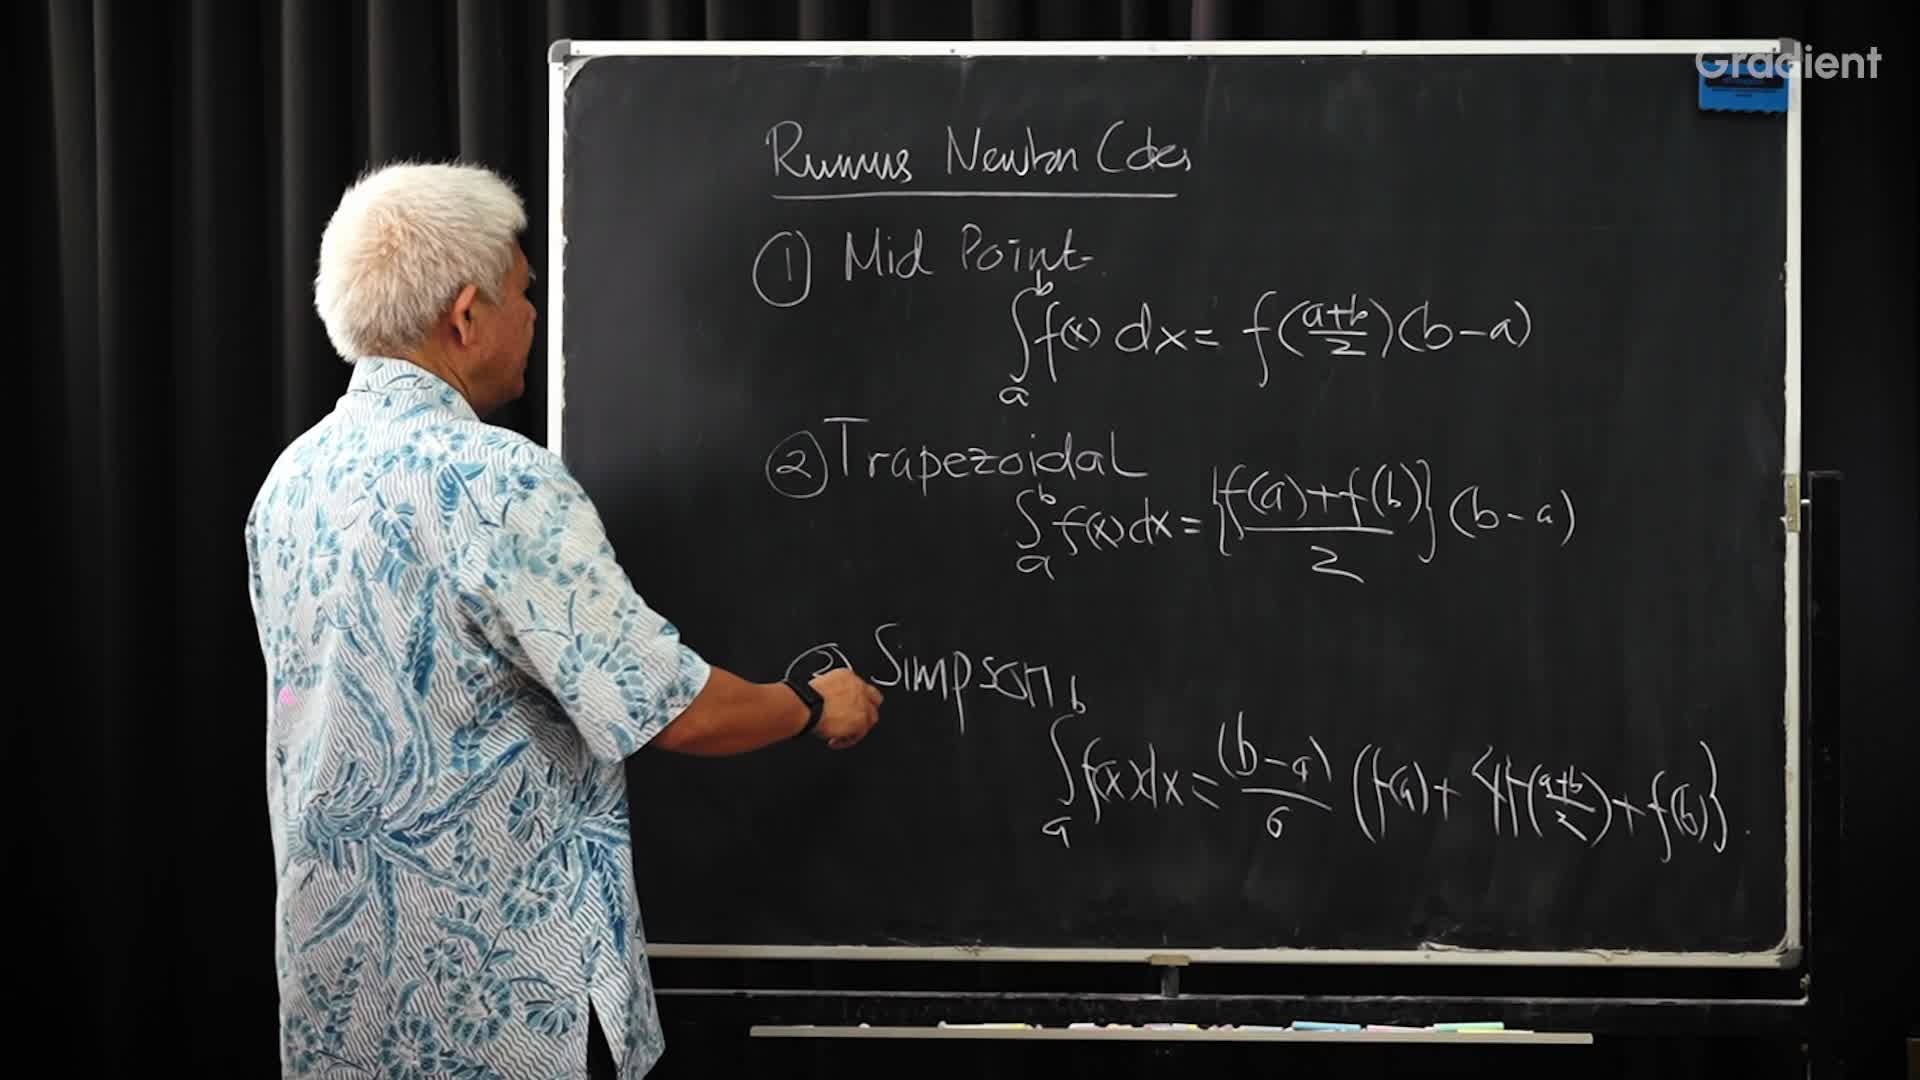 Gradient
Rumus Newton Cotes
① Mid Point
∫_a^b f(x) dx = f((a+b)/2)(b-a)
② Trapezoidal
∫_a^b f(x) dx = {(f(a)+f(b))/2} (b-a)
Simpson
∫_a^b f(x) dx = (b-a)/6 (f(a) + 4f((a+b)/2) + f(b)}